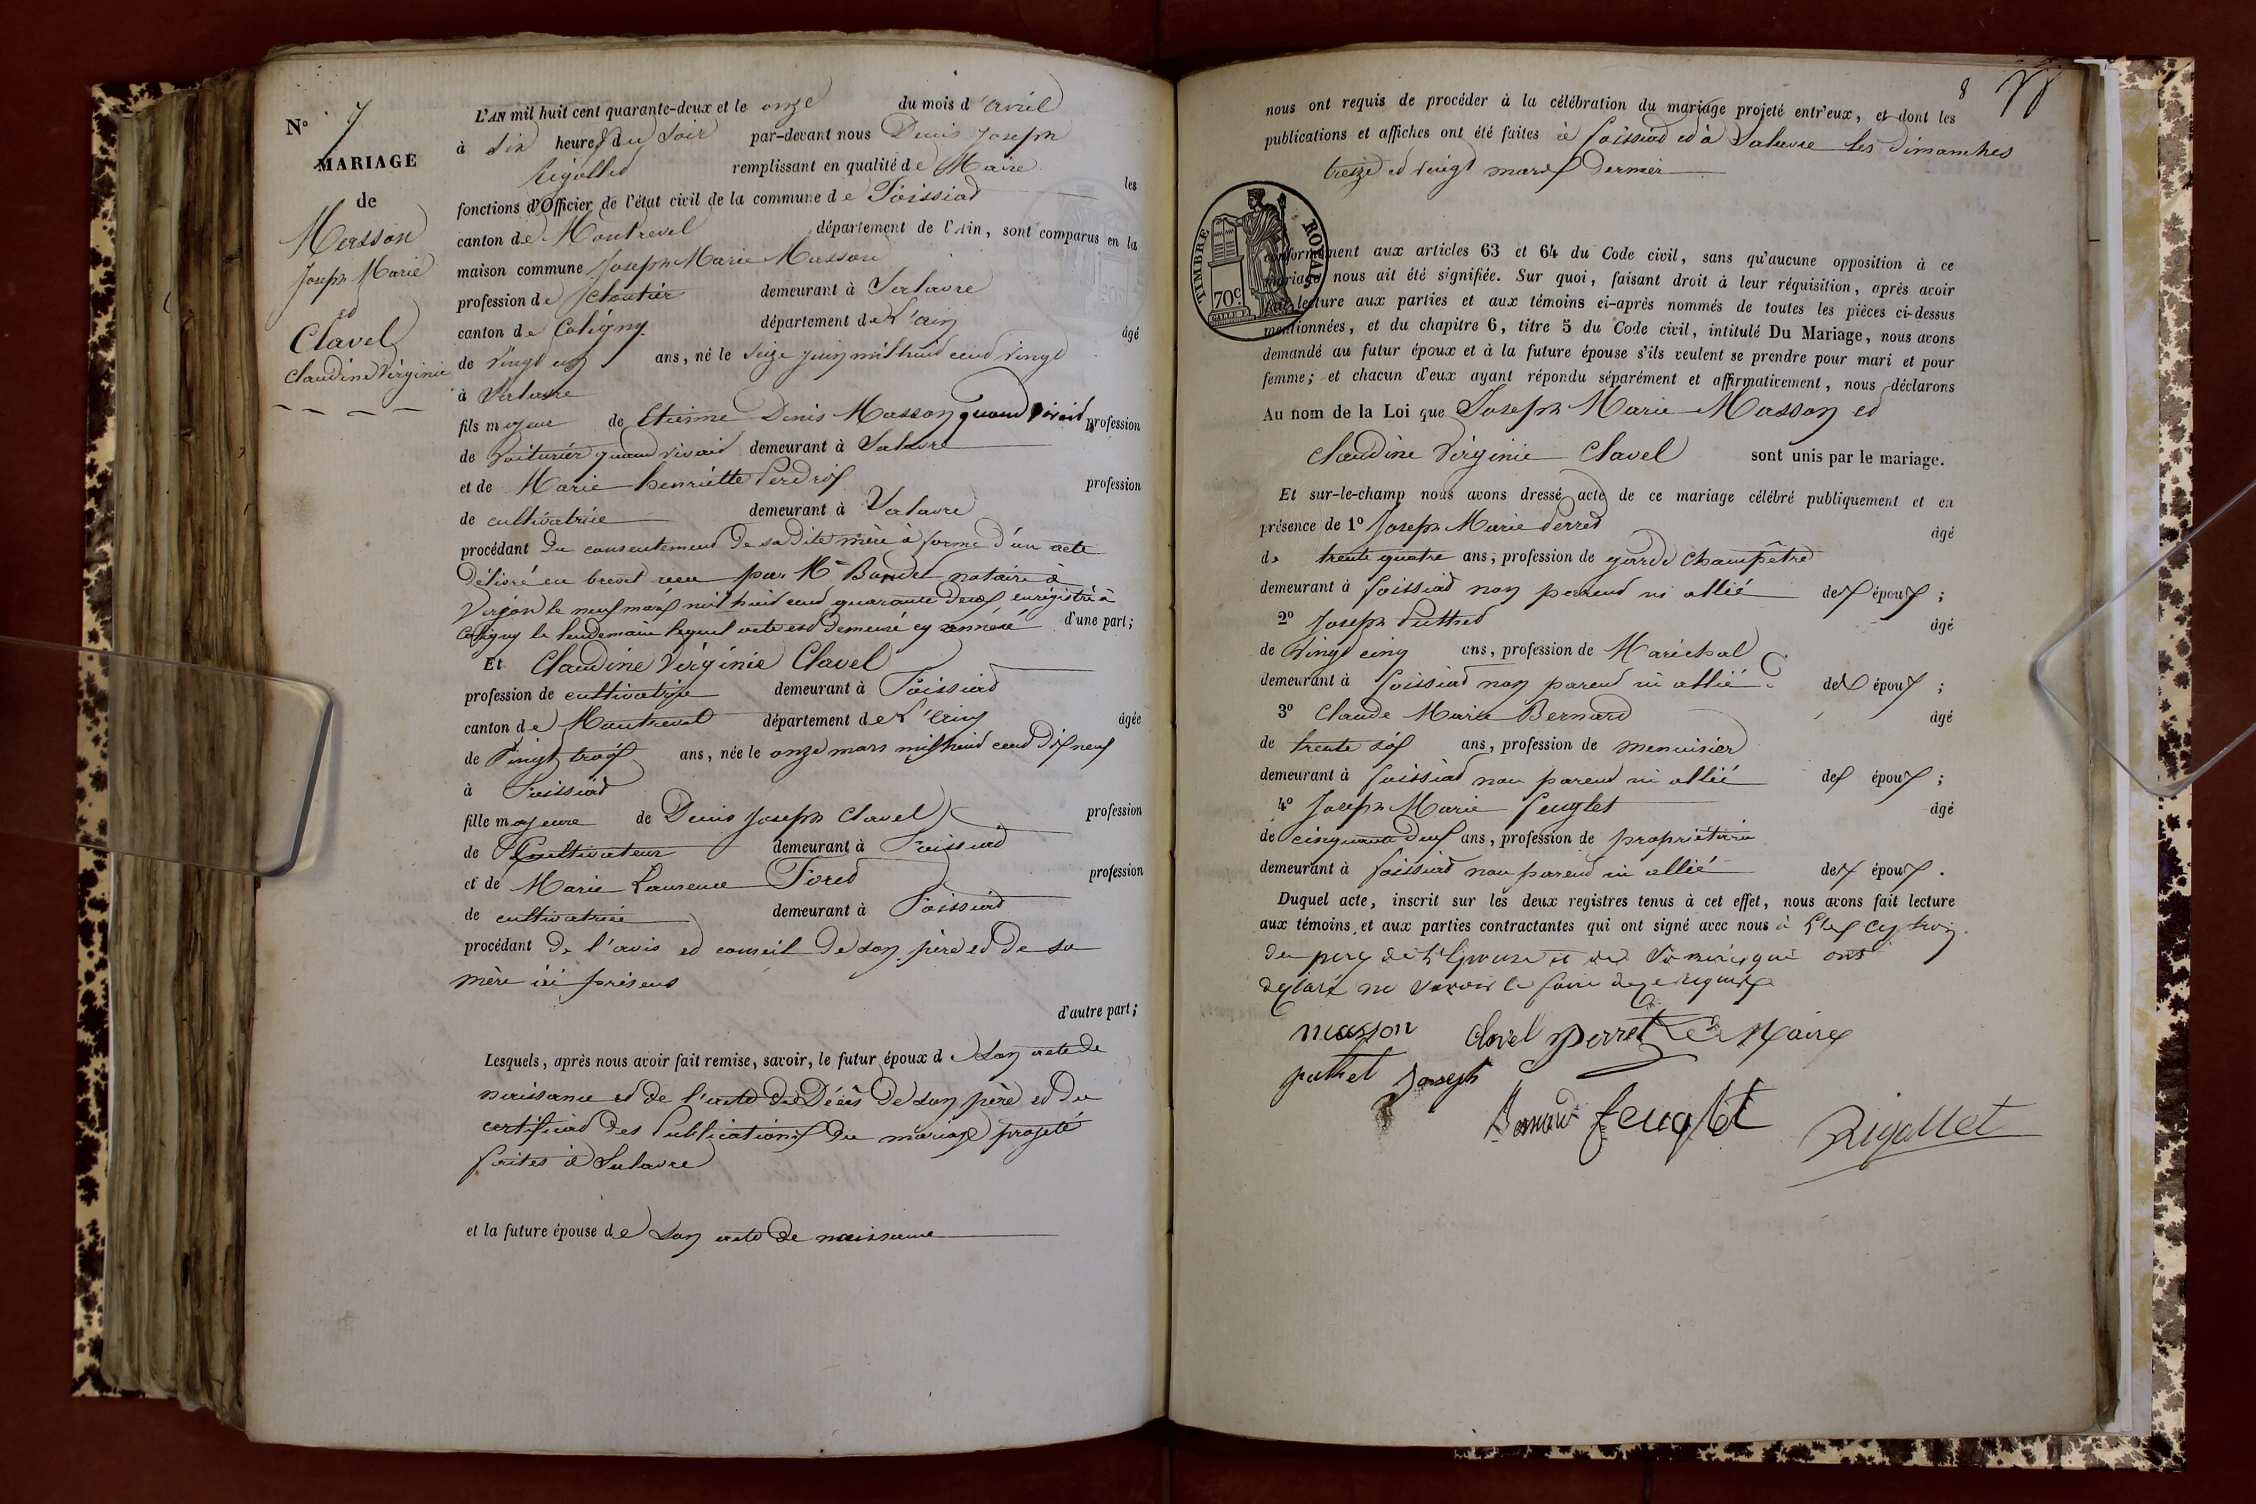 N° 7
MARIAGE
de
Masson
Joseph Marie
et
Clavel
Claudine Virginie
L'AN mil huit cent quarante-deux et le onze du mois d'avril
à six heures du soir par-devant nous Denis Joseph
Rigollet remplissant en qualité de Maire les
fonctions d'Officier de l'état civil de la commune de Foissiat
canton de Montrevel département de l'Ain, sont comparus en la
maison commune Joseph Marie Masson
profession de cloutier demeurant à Salavre
canton de Coligny département de l'ain âgé
de vingt un ans, né le seize juin mil huit cent vingt
à Salavre
fils majeur de Etienne Denis Masson quand vivait profession
de voiturier quand vivait demeurant à Salavre
et de Marie henriette Perdrix profession
de cultivatrice demeurant à Salavre
procédant du consentement de sa dite mère à forme d'un acte
délivré en brevet reçu par Me notaire à
Verjon le neuf mars mil huit cent quarante deux enregistré à
Coligny le lendemain lequel acte est demeuré cy annéxé d'une part;
Et Claudine Virginie Clavel
profession de cultivatrice demeurant à Foissiat
canton de Montrevel département de L'ain âgée
de vingt trois ans, née le onze mars mil huit cent dix neuf
à Foissiat
fille majeure de Denis Joseph Clavel profession
de Cultivateur demeurant à Foissiat
et de Marie Laurence Foret profession
de cultivatrice demeurant à Foissiat
procédant de l'avis et conseil de son père et de sa
mère ici présens
d'autre part;
Lesquels, après nous avoir fait remise, savoir, le futur époux de son acte de
naissance et de l'acte de Décès de son père et du
certificat des Publications du mariage projeté
faites à Salavre
et la future épouse de son acte de naissance
8
nous ont requis de procéder à la célébration du mariage projeté entr'eux, et dont les
publications et affiches ont été faites à foissiat et à Salavre les dimanches
treize et vingt mars dernier
TIMBRE ROYAL
70c.
conformément aux articles 63 et 64 du Code civil, sans qu'aucune opposition à ce
mariage nous ait été signifiée. Sur quoi, faisant droit à leur réquisition, après avoir
fait lecture aux parties et aux témoins ci-après nommés de toutes les pièces ci-dessus
mentionnées, et du chapitre 6, titre 5 du Code civil, intitulé Du Mariage, nous avons
demandé au futur époux et à la future épouse s'ils veulent se prendre pour mari et pour
femme; et chacun d'eux ayant répondu séparément et affirmativement, nous déclarons
Au nom de la Loi que Joseph Marie Masson et
Claudine Virginie Clavel sont unis par le mariage.
Et sur-le-champ nous avons dressé acte de ce mariage célébré publiquement et en
présence de 1° Joseph Marie Perret âgé
de trente quatre ans, profession de garde champêtre
demeurant à foissiat non parend ni allié des époux;
2° Joseph Puthet âgé
de vingt cinq ans, profession de Maréchal
demeurant à foissiat non parend ni allié des époux;
3° Claude Marie Bernard âgé
de trente six ans, profession de menuisier
demeurant à foissiat non parend ni allié des époux;
4° Joseph Marie Feuglet âgé
de cinquante deux ans, profession de propriétaire
demeurant à foissiat non parend ni allié des époux.
Duquel acte, inscrit sur les deux registres tenus à cet effet, nous avons fait lecture
aux témoins, et aux parties contractantes qui ont signé avec nous à
du père de l'Epouse et sa mère qui ont
déclaré ne savoir le faire de ce requis
masson Clavel perret Le Maire
puthet Joseph
Bernard feuglet Rigollet